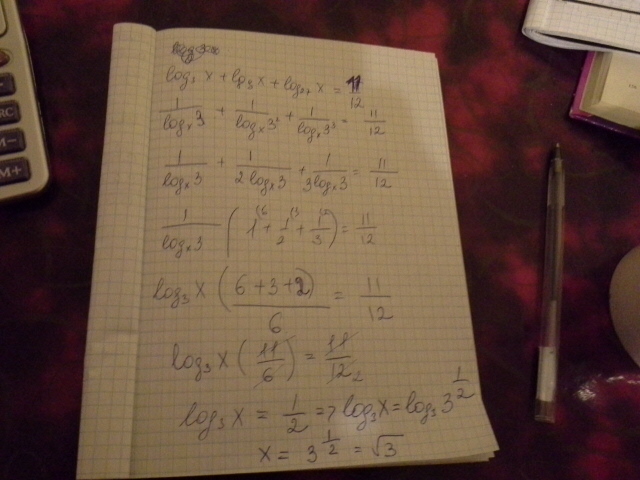 log₃ x + log₉ x + log₂₇ x = 11/12
1/logₓ3 + 1/logₓ3² + 1/logₓ3³ = 11/12
1/logₓ3 + 1/2logₓ3 + 1/3logₓ3 = 11/12
1/logₓ3 (1 + 1/2 + 1/3) = 11/12
log₃ x ((6+3+2)/6) = 11/12
log₃ x (11/6) = 11/12 2
log₃ x = 1/2 => log₃x = log₃ 3^(1/2)
x = 3^(1/2) = √3
RC
M−
M+